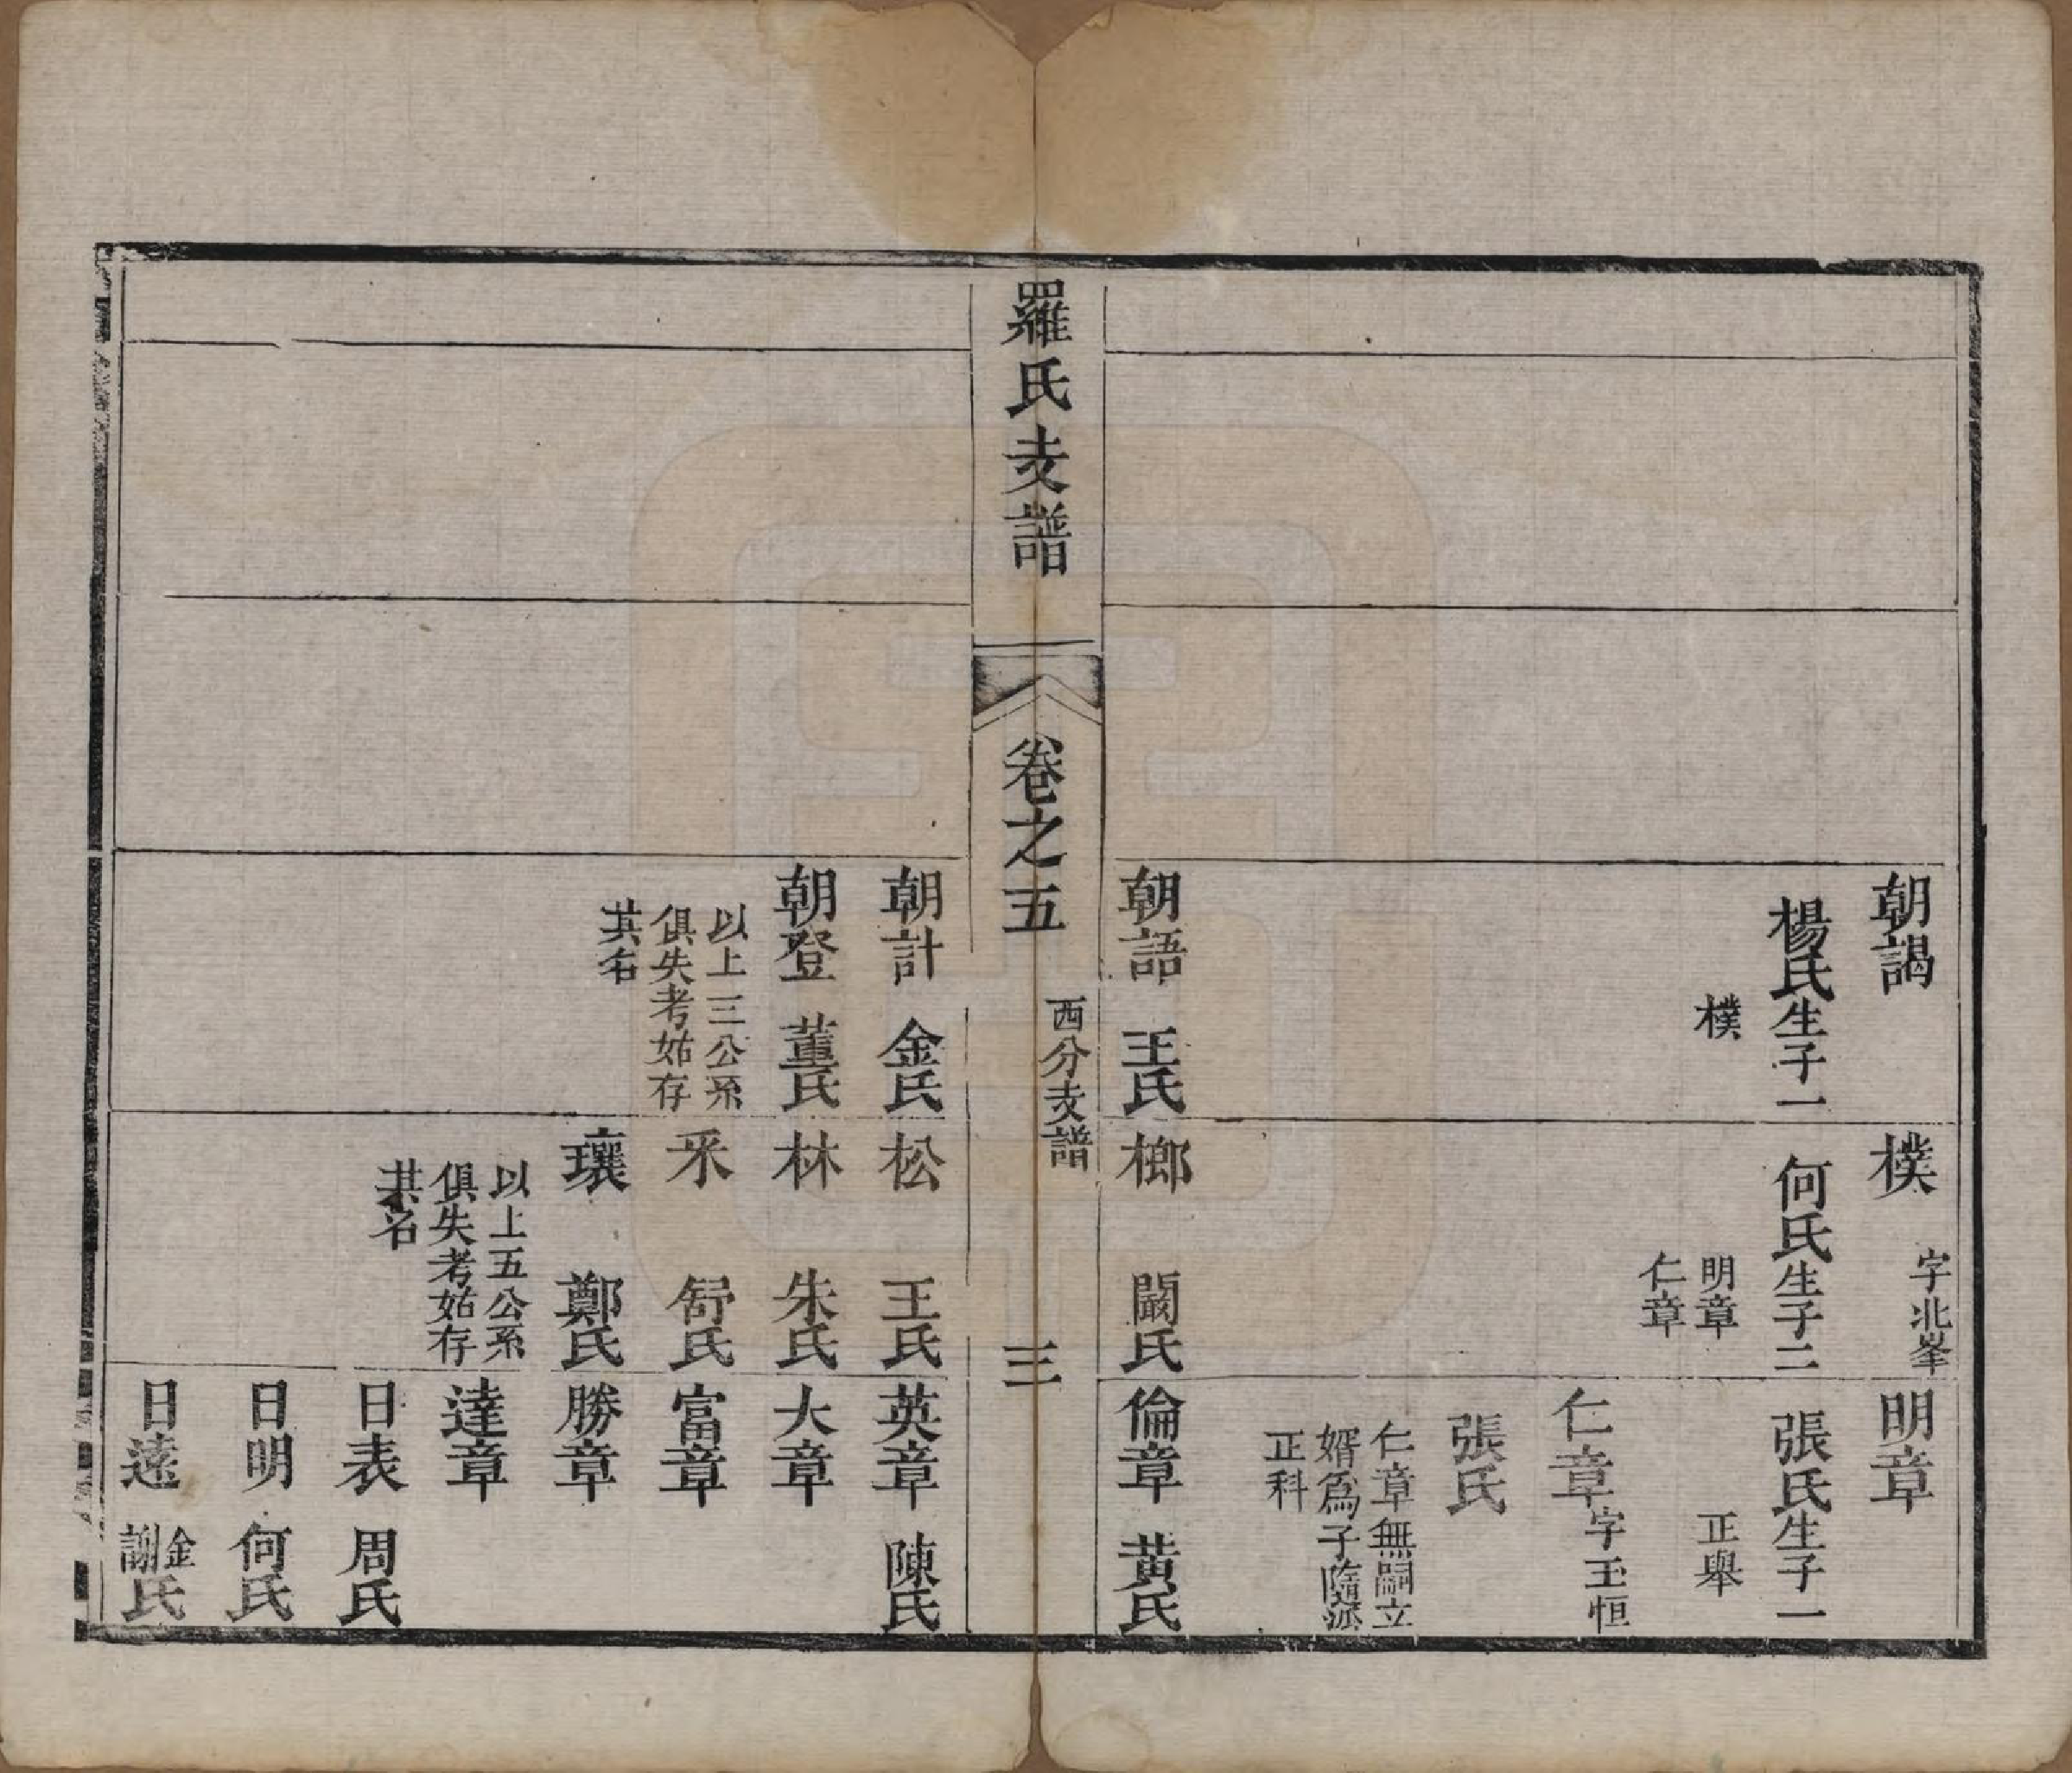 朝謁
楊氏生子一
樸
朝語 王氏
樸 字北峯
何氏生子二
明章
仁章
榔 闞氏
明章
張氏生子一
正舉
仁章 字玉恒
張氏
仁章無嗣立
婿為子隨派
正科
倫章 黃氏
羅氏支譜
卷之五
西分支譜
三
朝計 金氏
朝登 董氏
以上三公系
俱失考姑存
其名
松 王氏
林 朱氏
釆 舒氏
瓖 鄭氏
以上五公系
俱失考姑存
其名
英章 陳氏
大章
富章
勝章
達章
日表 周氏
日明 何氏
日遠 金謝氏